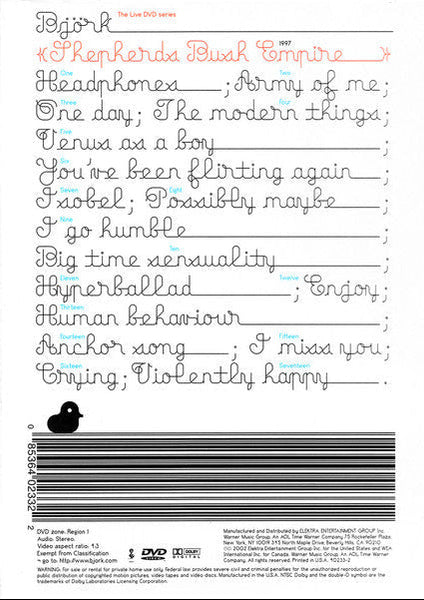 Björk The Live DVD series
Shepherds Bush Empire 1997
One Two
Headphones ; Army of me ;
Three Four
One day ; The modern things ;
Five
Venus as a boy ;
Six
You've been flirting again ;
Seven Eight
Isobel ; Possibly maybe ;
Nine
I go humble ;
Ten
Big time sensuality ;
Eleven Twelve
Hyperballad ; Enjoy ;
Thirteen
Human behaviour ;
Fourteen Fifteen
Anchor song ; I miss you ;
Sixteen Seventeen
Crying ; Violently happy .
0 85364 02332 2
DVD zone. Region 1
Audio. Stereo.
Video aspect ratio: 4:3
Exempt from Classification
¬ go to: http://www.bjork.com
DVD VIDEO
DOLBY DIGITAL
Manufactured and Distributed by ELEKTRA ENTERTAINMENT GROUP Inc.
Warner Music Group. An AOL Time Warner Company 75 Rockefeller Plaza,
New York, NY 10019 345 North Maple Drive, Beverly Hills, CA 90210
© 2002 Elektra Entertainment Group Inc. for the United States and WEA
International Inc. for Canada. Warner Music Group. An AOL Time Warner
Company. All Rights Reserved. Printed in U.S.A. 40233-2
WARNING: for sale or rental for private home use only federal law provides severe civil and criminal penalties for the unauthorized reproduction or
public distribution of copyrighted motion pictures, video tapes and video discs. Manufactured in the U.S.A. NTSC Dolby and the double-D symbol are the
trademarks of Dolby Laboratories Licensing Corporation.